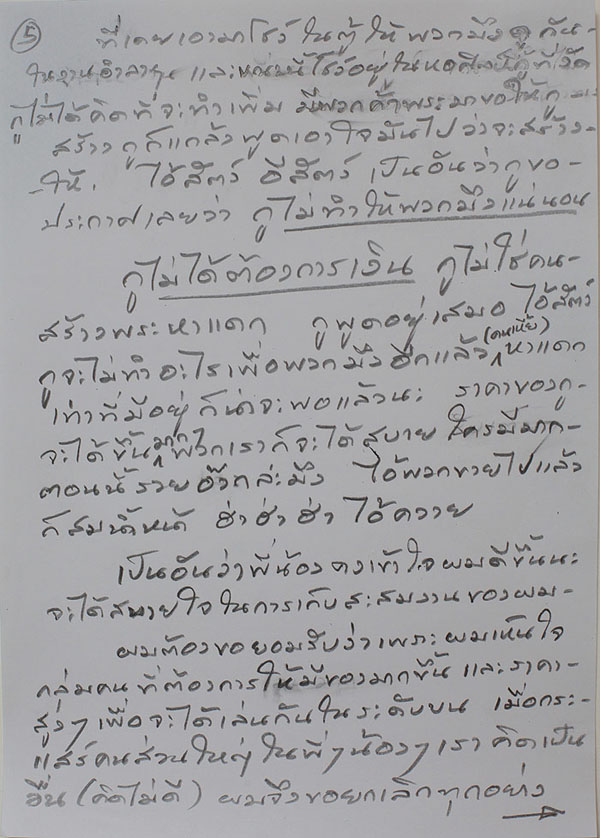 ⑤ ที่เคยเอามาโชว์ ในตู้ ให้ พวกมึง ดู กัน-
ในงานอำลา และ โชว์อยู่ ในหอศิลป์กู ที่วัด
กูไม่ได้คิดที่จะทำเพิ่ม มีพวกค้าพระมาขอให้กู
สร้าง กูก็แกล้งพูดเอาใจมันไปว่าจะสร้าง-
-ให้. ไอ้สัตว์ อีสัตว์ เป็นอันว่ากูขอ-
ประกาศเลยว่า กูไม่ทำให้พวกมึงแน่นอน
กูไม่ได้ต้องการเงิน กูไม่ใช่คน-
สร้างพระหาแดก กูพูดอยู่เสมอ ไอ้สัตว์
กูจะไม่ทำอะไรเพื่อพวกมึงอีกแล้ว (คนเหี้ย) หาแดก
เท่าที่มีอยู่ ก็น่าจะพอแล้วนะ ราคาของกู-
จะได้ขึ้นมากๆ พวกเราก็จะได้สบาย ใครมีมาก-
ตอนนี้รวยอ๊วกล่ะมึง ไอ้พวกขายไปแล้ว
ก็สมน้ำหน้า ฮ่า ฮ่า ฮ่า ไอ้ควาย
เป็นอันว่าพี่น้องคงเข้าใจผมดีขึ้นนะ
จะได้สบายใจในการเก็บสะสมงานของผม-
ผมต้องขอยอมรับว่าเพราะผมเห็นใจ
กลุ่มคนที่ต้องการให้มีของมากขึ้น และราคา-
สูงๆ เพื่อจะได้เล่นกันในระดับบน เมื่อกระ-
แสร์คนส่วนใหญ่ในพี่ๆน้องๆเราคิดเป็น
อื่น (คิดไม่ดี) ผมจึงขอยกเลิกทุกอย่าง